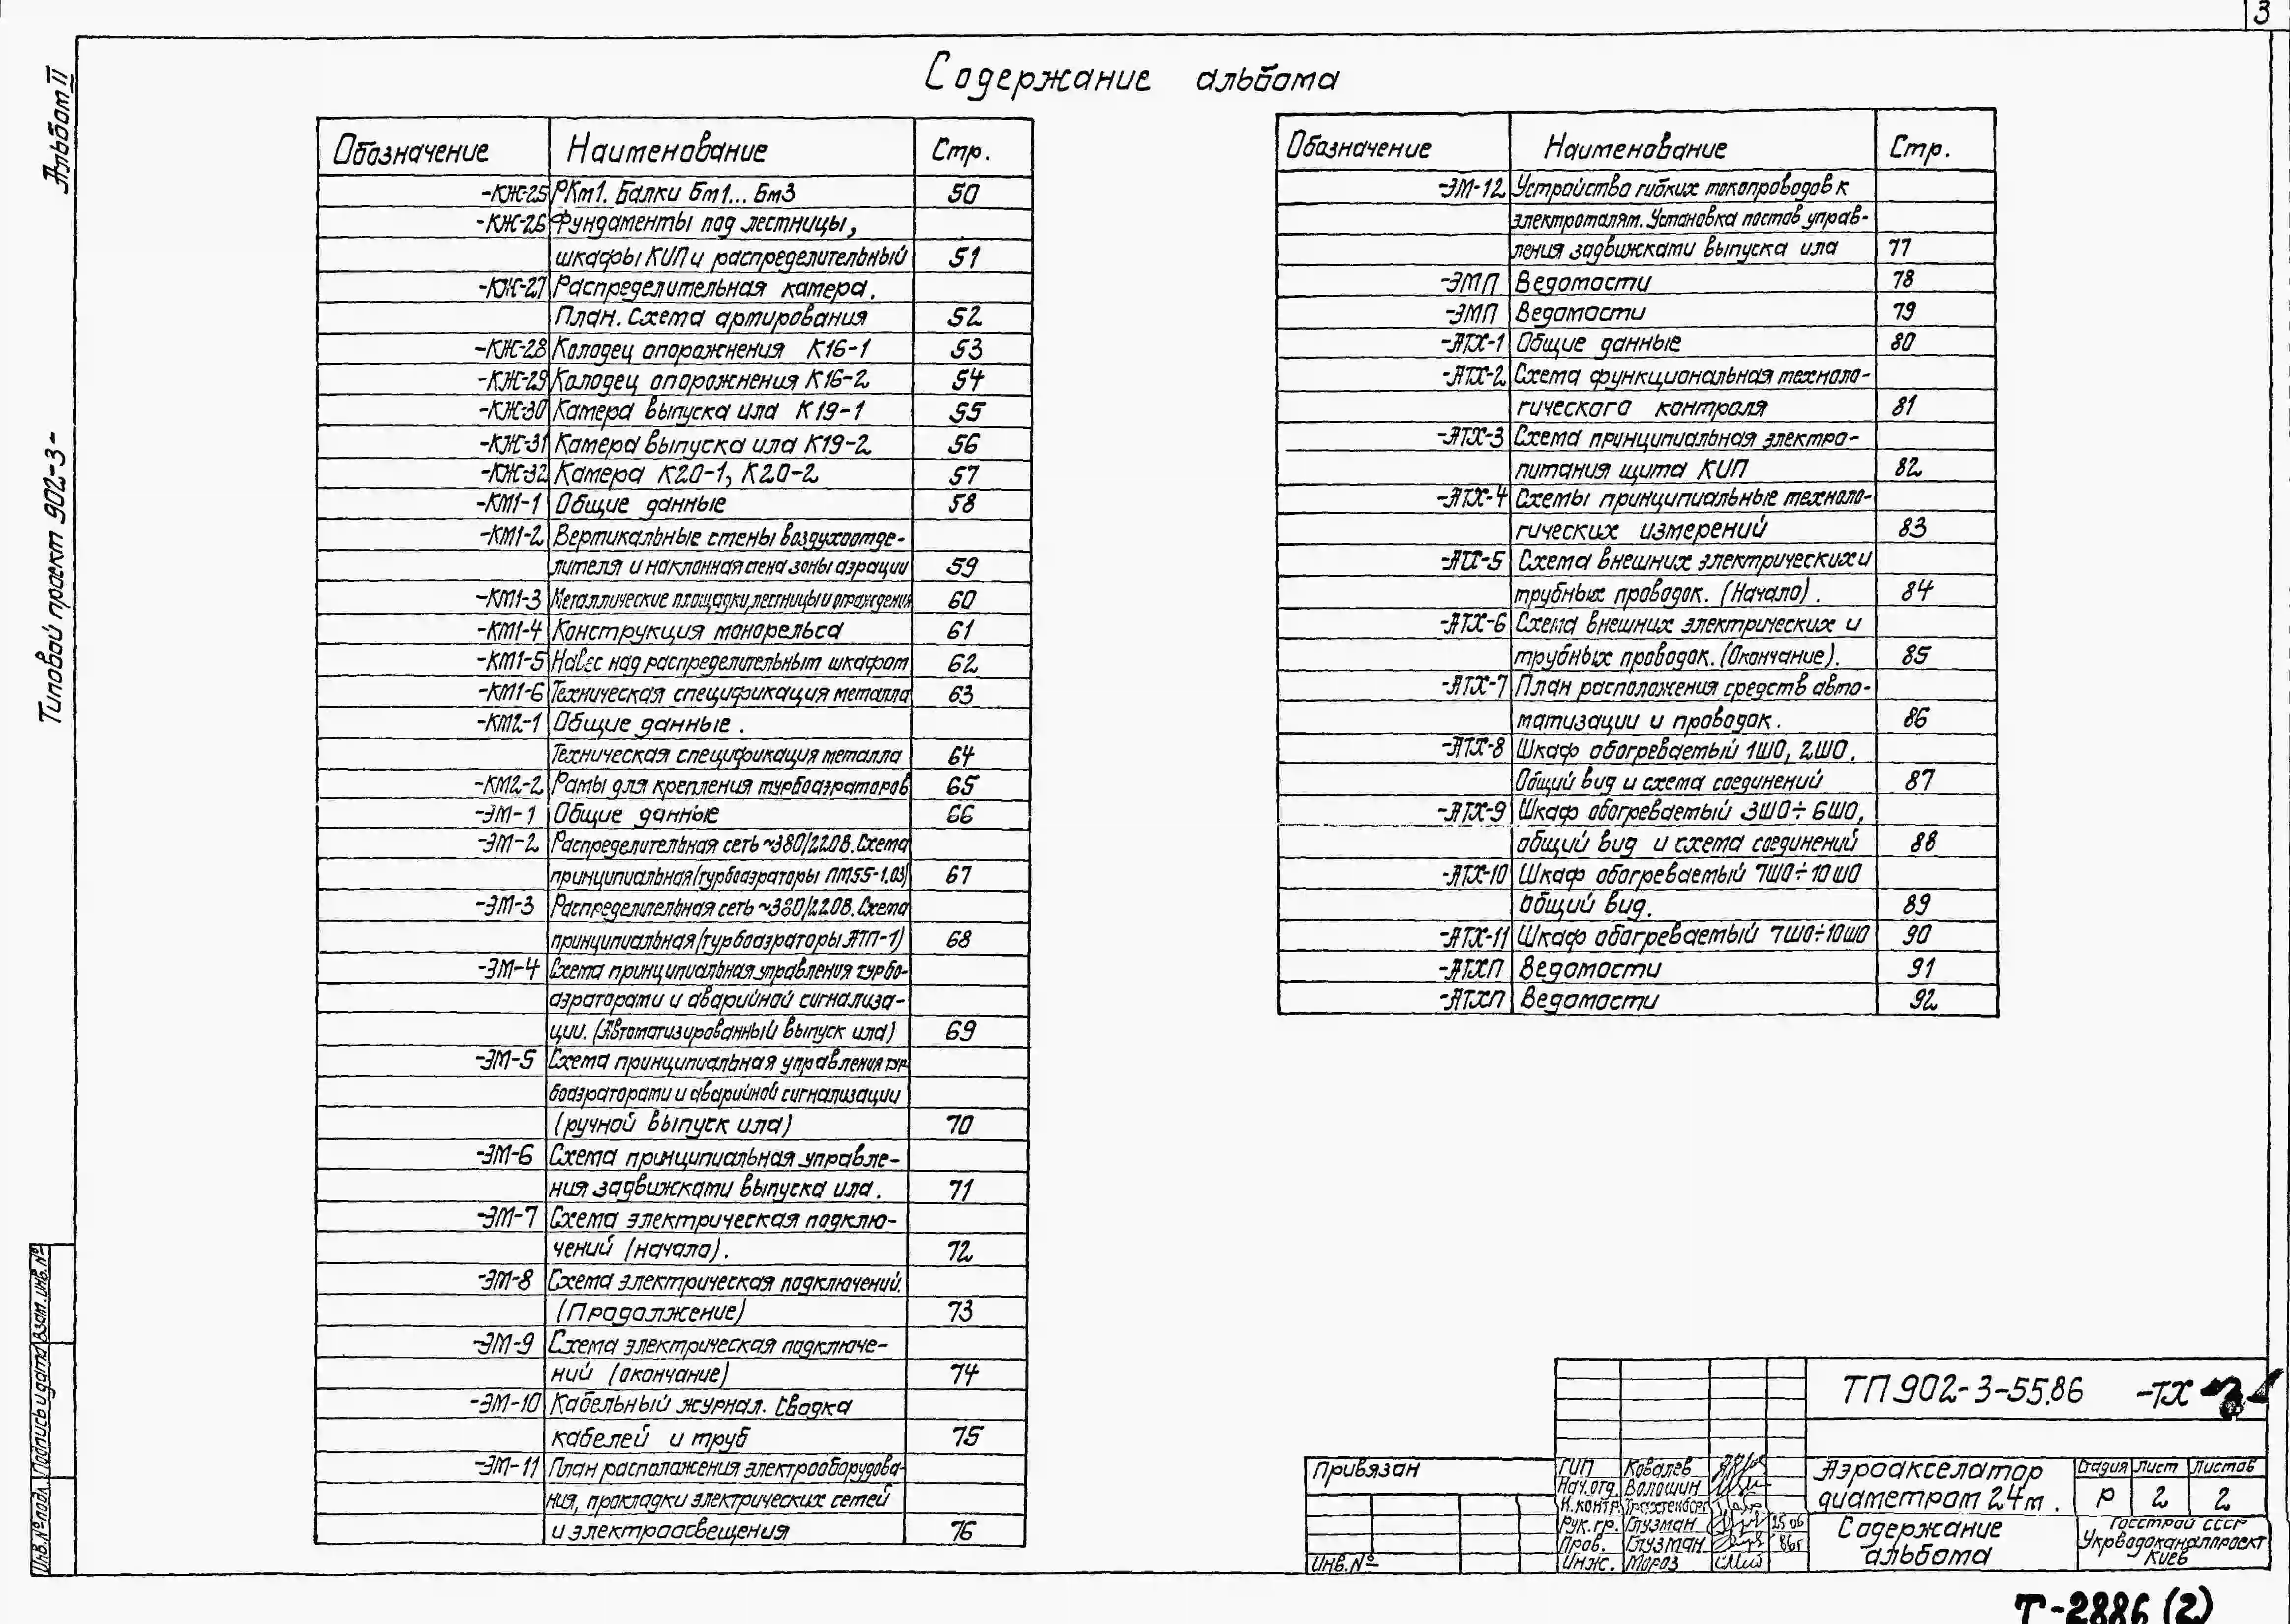 3
Альбом II
Типовой проект 902-3-
Содержание альбома
Обозначение Наименование Стр.
-КЖ-25 РКм1. Балки Бм1... Бм3 50
-КЖ-26 Фундаменты под лестницы,
шкафы КИП и распределительный 51
-КЖ-27 Распределительная камера.
План. Схема армирования 52
-КЖ-28 Колодец опорожнения К16-1 53
-КЖ-29 Колодец опорожнения К16-2 54
-КЖ-30 Камера выпуска ила К19-1 55
-КЖ-31 Камера выпуска ила К19-2 56
-КЖ-32 Камера К20-1, К20-2 57
-КМ1-1 Общие данные 58
-КМ1-2 Вертикальные стены воздухоотде-
лителя и наклонная стена зоны аэрации 59
-КМ1-3 Металлические площадки, лестницы и ограждения 60
-КМ1-4 Конструкция монорельса 61
-КМ1-5 Навес над распределительным шкафом 62
-КМ1-6 Техническая спецификация металла 63
-КМ2-1 Общие данные.
Техническая спецификация металла 64
-КМ2-2 Рамы для крепления турбоаэраторов 65
-ЭМ-1 Общие данные 66
-ЭМ-2 Распределительная сеть ~380/220В. Схема
принципиальная (турбоаэраторы ПМ55-1.03) 67
-ЭМ-3 Распределительная сеть ~380/220В. Схема
принципиальная (турбоаэраторы АТП-1) 68
-ЭМ-4 Схема принципиальная управления турбо-
аэраторами и аварийной сигнализа-
ции. (Автоматизированный выпуск ила) 69
-ЭМ-5 Схема принципиальная управления тур-
боаэраторами и аварийной сигнализации
(ручной выпуск ила) 70
-ЭМ-6 Схема принципиальная управле-
ния задвижками выпуска ила. 71
-ЭМ-7 Схема электрическая подклю-
чений (начало). 72
-ЭМ-8 Схема электрическая подключений.
(Продолжение) 73
-ЭМ-9 Схема электрическая подключе-
ний (окончание) 74
-ЭМ-10 Кабельный журнал. Сводка
кабелей и труб 75
-ЭМ-11 План расположения электрооборудова-
ния, прокладки электрических сетей
и электроосвещения 76
Обозначение Наименование Стр.
-ЭМ-12 Устройство гибких токопроводов к
электроталям. Установка постов управ-
ления задвижками выпуска ила 77
-ЭМП Ведомости 78
-ЭМП Ведомости 79
-АТХ-1 Общие данные 80
-АТХ-2 Схема функциональная техноло-
гического контроля 81
-АТХ-3 Схема принципиальная электро-
питания щита КИП 82
-АТХ-4 Схемы принципиальные техноло-
гических измерений 83
-АТХ-5 Схема внешних электрических и
трубных проводок. (Начало). 84
-АТХ-6 Схема внешних электрических и
трубных проводок. (Окончание). 85
-АТХ-7 План расположения средств авто-
матизации и проводок. 86
-АТХ-8 Шкаф обогреваемый 1ШО, 2ШО.
Общий вид и схема соединений 87
-АТХ-9 Шкаф обогреваемый 3ШО÷6ШО,
общий вид и схема соединений 88
-АТХ-10 Шкаф обогреваемый 7ШО÷10ШО
Общий вид. 89
-АТХ-11 Шкаф обогреваемый 7ШО÷10ШО 90
-АТХП Ведомости 91
-АТХП Ведомости 92
Инв.№ подл. Подпись и дата Взам.инв.№
Привязан
Инв.№
ТП 902-3-55.86 -ТХ
ГИП Ковалев
Нач.отд. Волошин
Н.контр. Трахтенберг
Рук.гр. Глузман 25 06
Пров. Глузман 86г
Инж. Мороз
Аэроакселатор
диаметром 24м.
Стадия Лист Листов
Р 2 2
Содержание
альбома
Госстрой СССР
Укрводоканалпроект
Киев
Т-2886 (2)